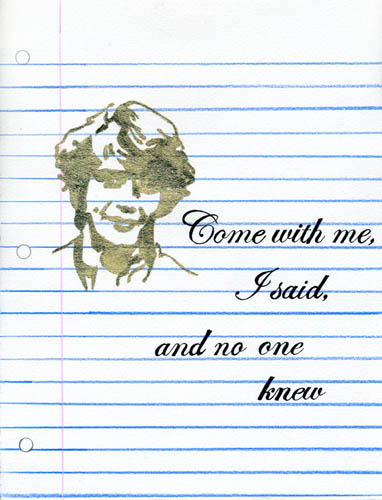 Come with me,
I said,
and no one
knew